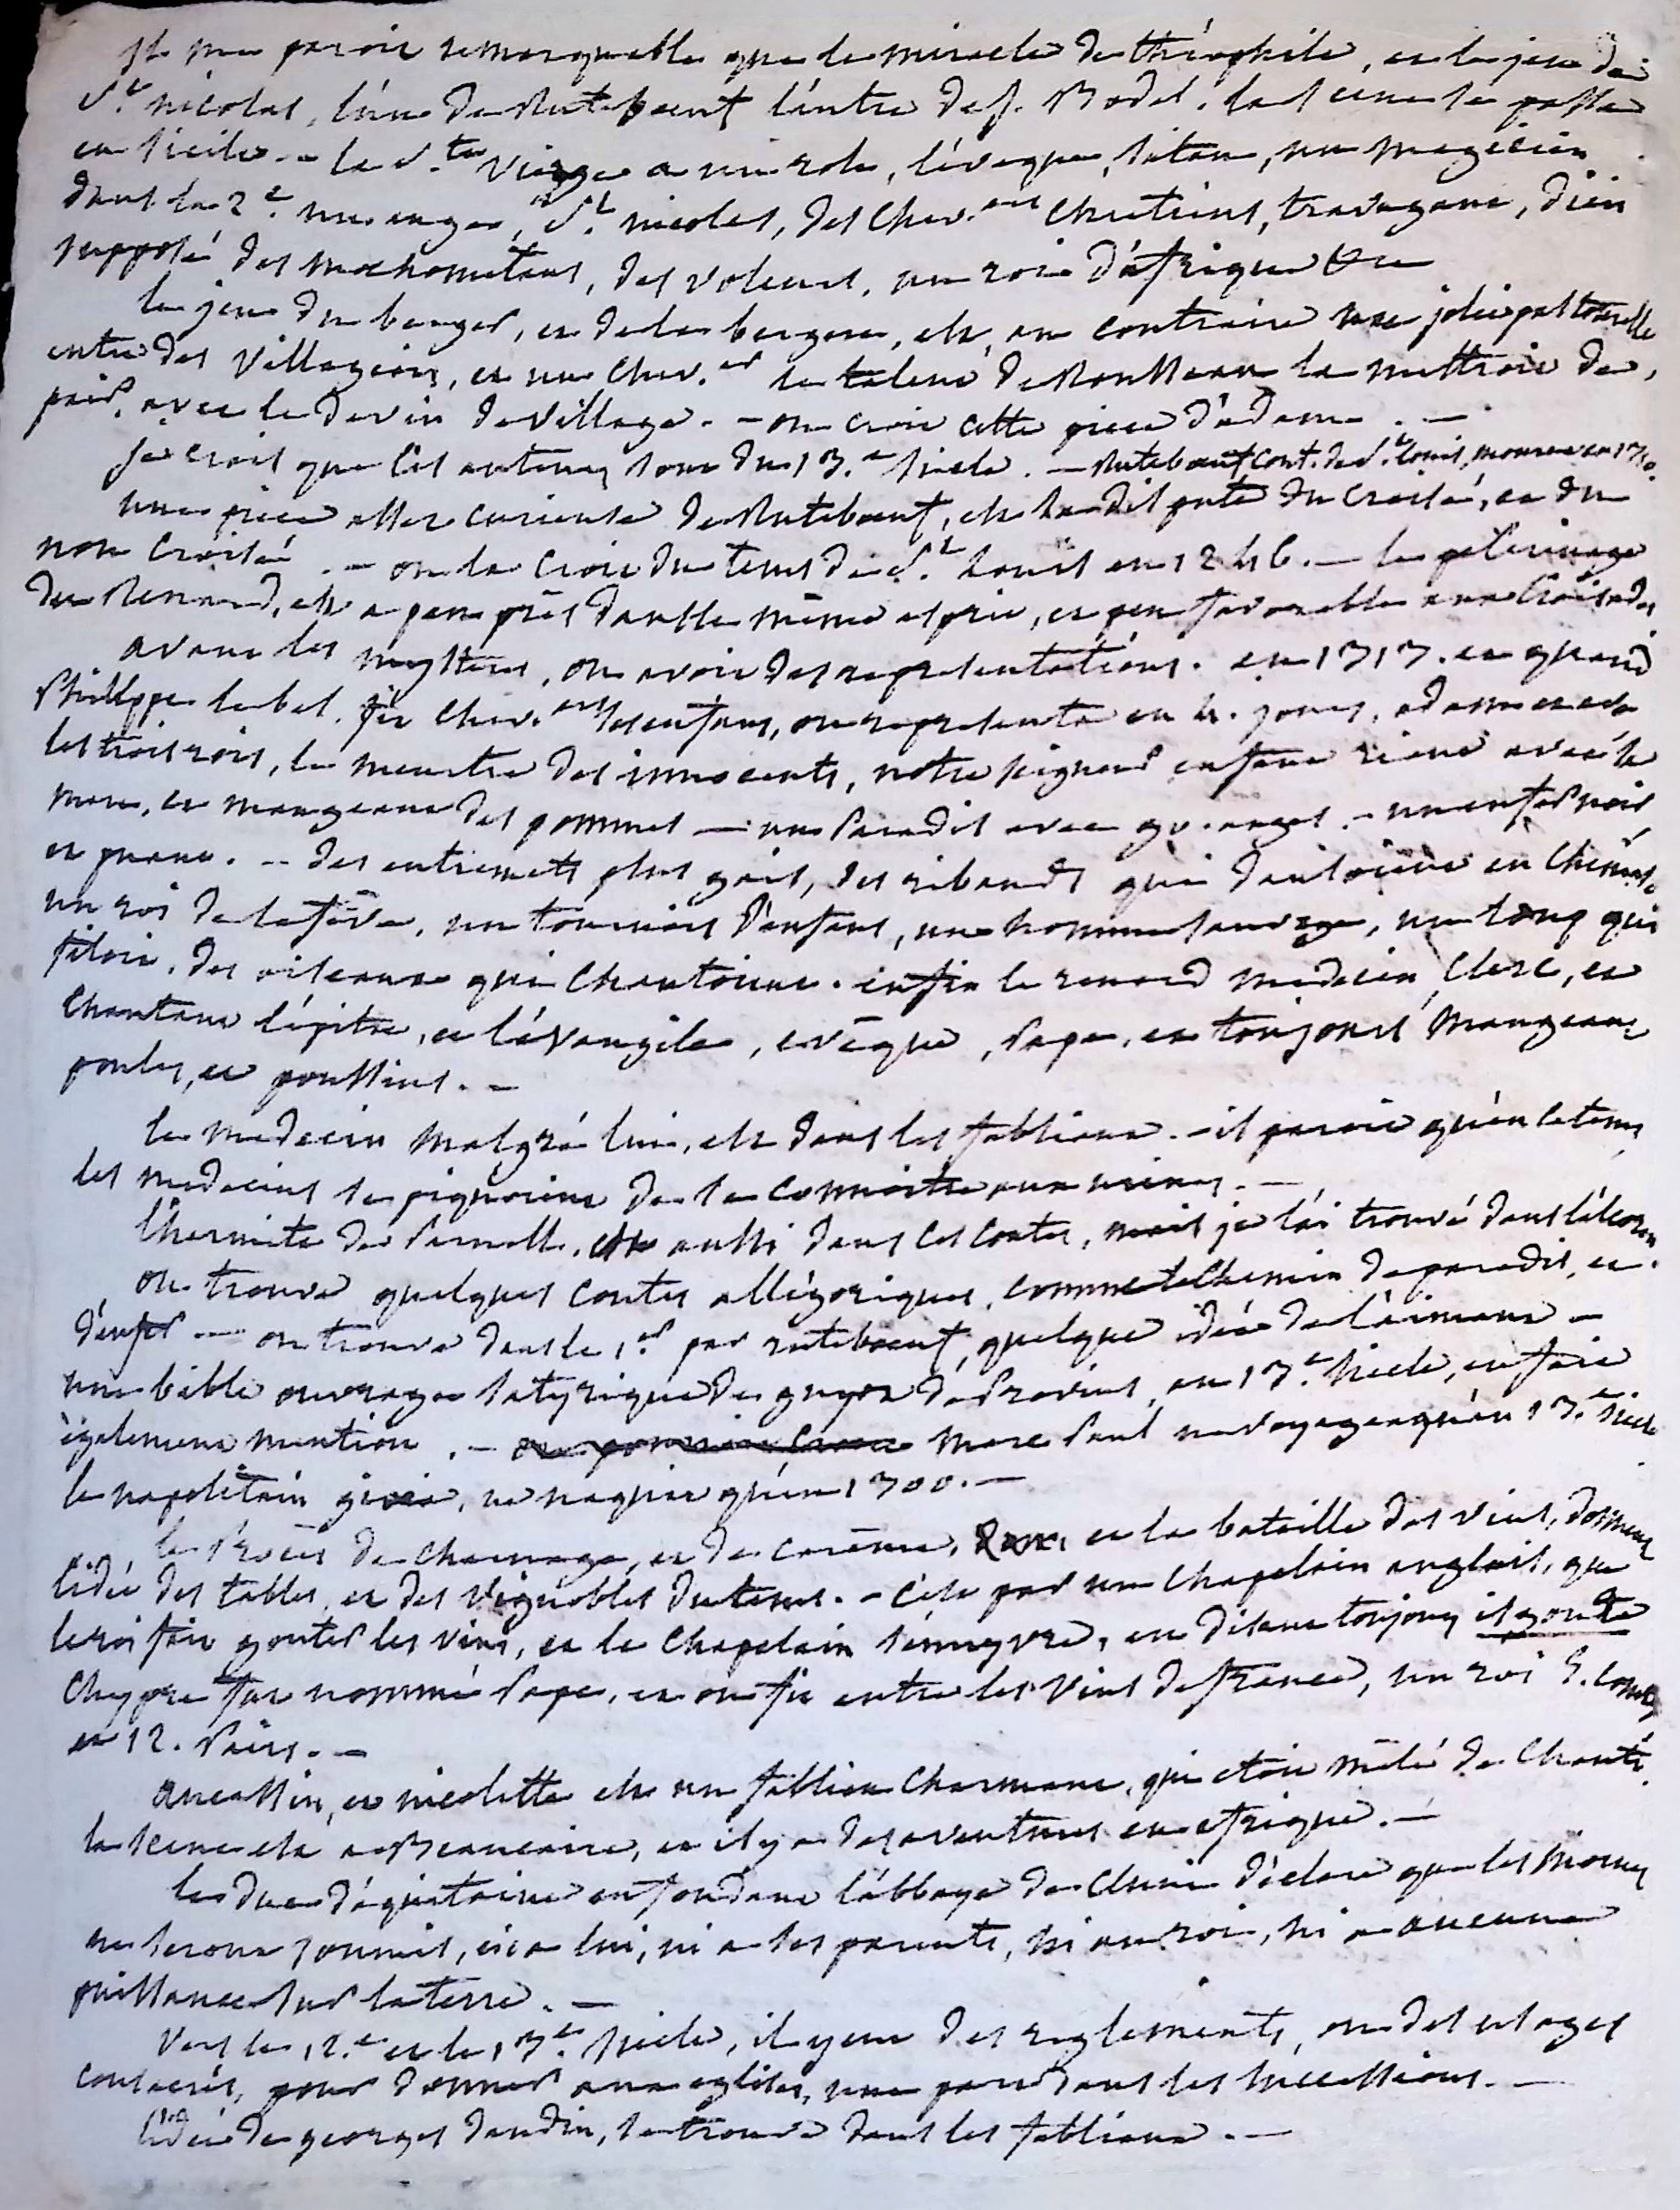 Il me paroit remarquable que le miracle de théophile, et le jeu de
St. nicolas, l'un de Ruteboeuf l'autre de J. Bodel. la scene se passe
en sicile. - la Ste. Vierge a un role, l'évêque, satan, un magicien
dans la 2e. un ange, St. nicolas, des chev.ers chretiens, travagant, dieu
supposé des mahometans, des voleurs, un roi d'afrique &c
le jeu du berger, et de la bergere, est, au contraire une jolie pastourelle
entre des villageois, et un chev.er le talent de Rousseau la mettroit de
pair, avec le devin de village. - on croit cette piece d'adam. -
Je crois que ces auteurs sont du 13.e siecle. - Ruteboeuf cont. de St. louis, mourut en 1310.
une piece assez curieuse de Rutebeouf, est la dispute du croisé, et du
non croisé. - on la croit du tems de St. Louis en 1246. - le pelerinage
du Renard, est a peu près dans le même esprit, et peu favorable aux Croisades
avant les mysteres, on avoit des representations. en 1313. et quand
Philippe le bel, fit chev.ers ses enfans, on representa en 4. jours, adam et eve
les trois rois, le meurtre des innocents, notre seigneur enfant riant avec sa
mere, et mangeant des pommes - un Paradis avec 90. anges. - un enfer noir
et puant. - des entremets plus gais, des ribauds qui dansoient en chemise
un roi de la fève, un tournois d'enfans, un homme sauvage, un loup qui
filoit, des oiseaux qui chantoient. enfin le renard medecin, clerc, et
chantant l'épitre, et l'évangile, evêque, Pape, et toujours mangeant
poules, et poussins. -
le medecin malgré lui, est dans les fabliaux. - il paroit qu'en ce tems,
les medecins se piquoient de se connoitre aux urines. -
l'hermite de Parnell, est aussi dans ces contes, mais je l'ai trouvé dans l'alcoran.
on trouve quelques contes allégoriques, comme le chemin de paradis, et
d'enfer - on trouve dans le 1.er par rutebeouf, quelque idée de l'aimant -
une bible ouvrage satyrique de guyot de Provins, au 13.e siecle, en fait
également mention. - Marc Paul ne voyagea qu'au 13.e siecle
le napolitain gioia, ne naquit qu'en 1300. -
le Procès de charnage, et de carême, et la bataille des vins, donnent
l'idée des tables, et des vignobles du tems. - c'est par un chapelain anglais, que
le roi fait gouter les vins, et le chapelain s'ennyvre, en disant toujours is goute
Chypre fut nommé Pape, et on fit entre les vins de france, un roi 3. comtes
et 12. Pairs. -
aucassin, et nicolette est un fabliau charmant, qui etoit mêlé de chants.
la scene est a Beaucaire, et il y a des aventures en afrique. -
le duc d'aquitaine en fondant l'abbaye de cluni déclare que les moines
ne seront soumis, ni a lui, ni a ses parents, ni au roi, ni a aucune
puissance sur la terre. -
Vers le 12.e et le 13.e siecle, il y eut des reglements, ou des usages
consacrés, pour donner aux eglises, une part dans les successions. -
l'idée de georges dandin, se trouve dans les fabliaux. -